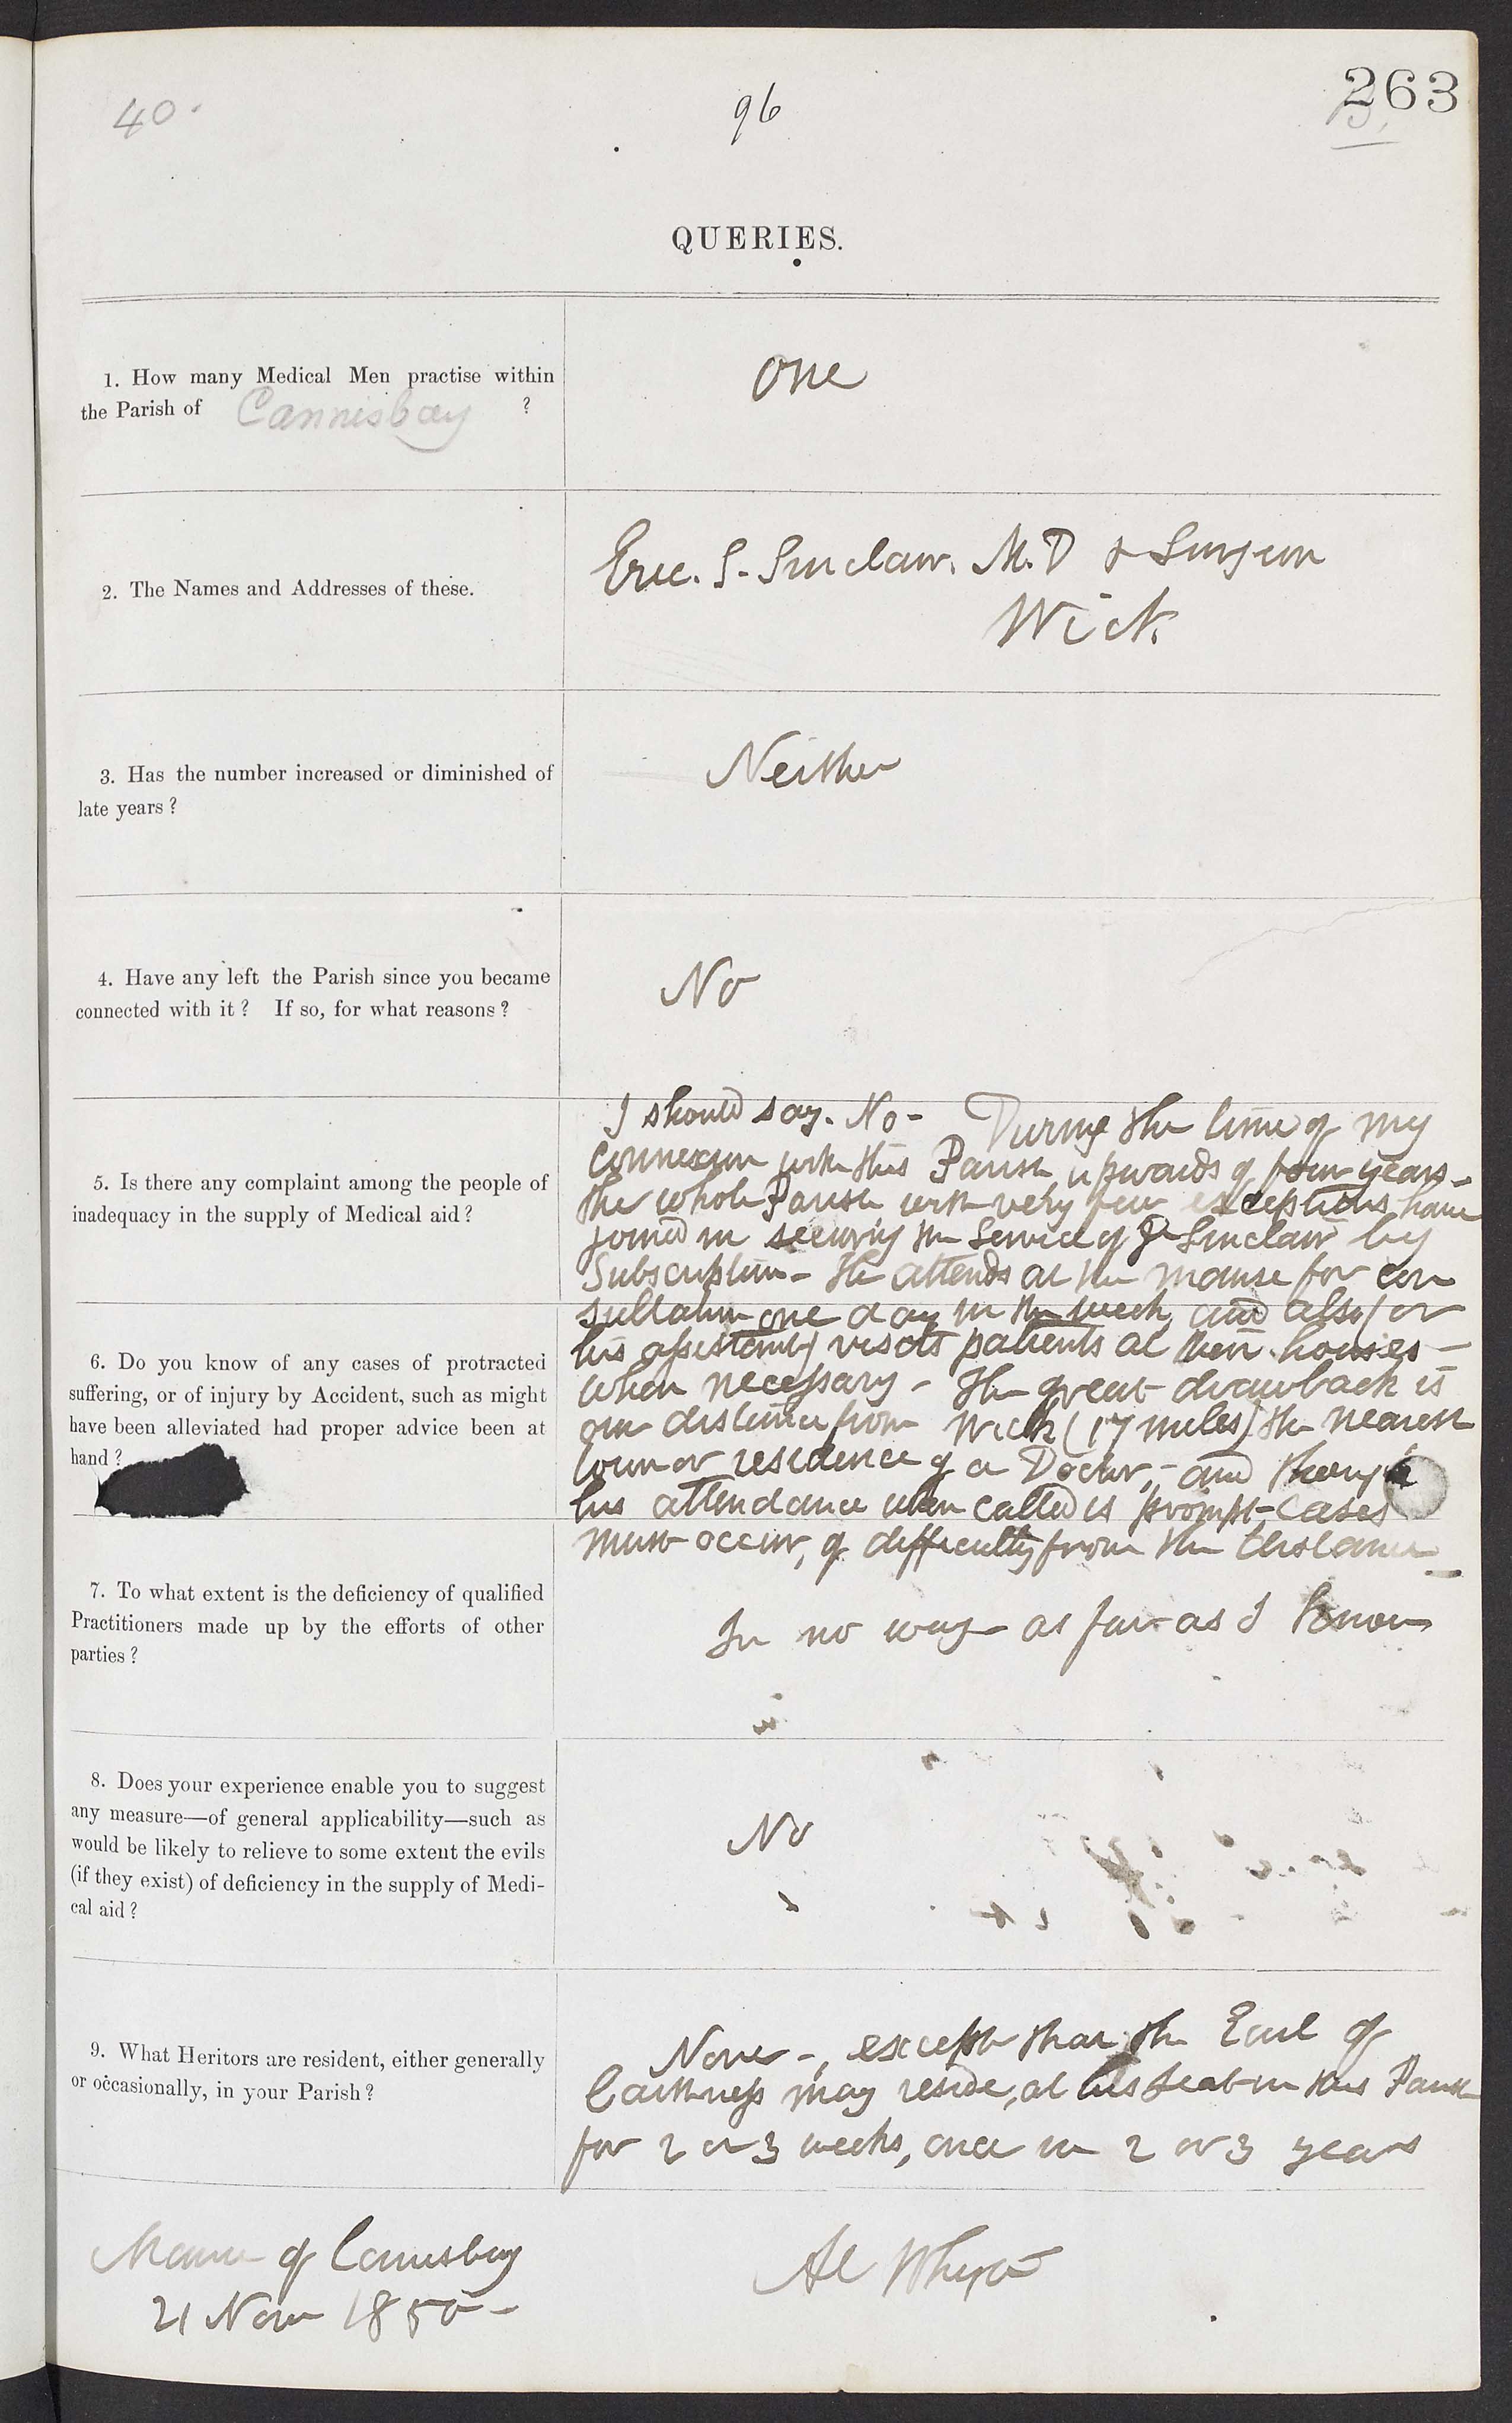 40.
96
263
QUERIES.
1. How many Medical Men practise within
the Parish of Cannisbay ?
One
2. The Names and Addresses of these.
Eric. S. Sinclair. M.D & Surgeon
Wick
3. Has the number increased or diminished of
late years ?
Neither
4. Have any left the Parish since you became
connected with it ? If so, for what reasons ?
No
5. Is there any complaint among the people of
inadequacy in the supply of Medical aid ?
I should say. No - During the time of my
Connexion with this Parish, upwards of four years -
the whole Parish with very few exceptions have
joined in securing the Service of Dr Sinclair by
Subscription - He attends at the manse for con
sultation one day in the week, and also (or
his assistant) visits patients at their houses -
when necessary - The great drawback is
our distance from Wick (17 miles) the nearest
town or residence of a Doctor, - and though
his attendance when called is prompt - Cases
must occur, of difficulty from the distance
6. Do you know of any cases of protracted
suffering, or of injury by Accident, such as might
have been alleviated had proper advice been at
hand ?
7. To what extent is the deficiency of qualified
Practitioners made up by the efforts of other
parties ?
In no way as far as I know
8. Does your experience enable you to suggest
any measure—of general applicability—such as
would be likely to relieve to some extent the evils
(if they exist) of deficiency in the supply of Medi-
cal aid ?
No
9. What Heritors are resident, either generally
or occasionally, in your Parish ?
None -, except that the Earl of
Caithness may reside, at his Seat in this Parish
for 2 or 3 weeks, once in 2 or 3 years
Manse of Canisbay
21 Novr 1850 -